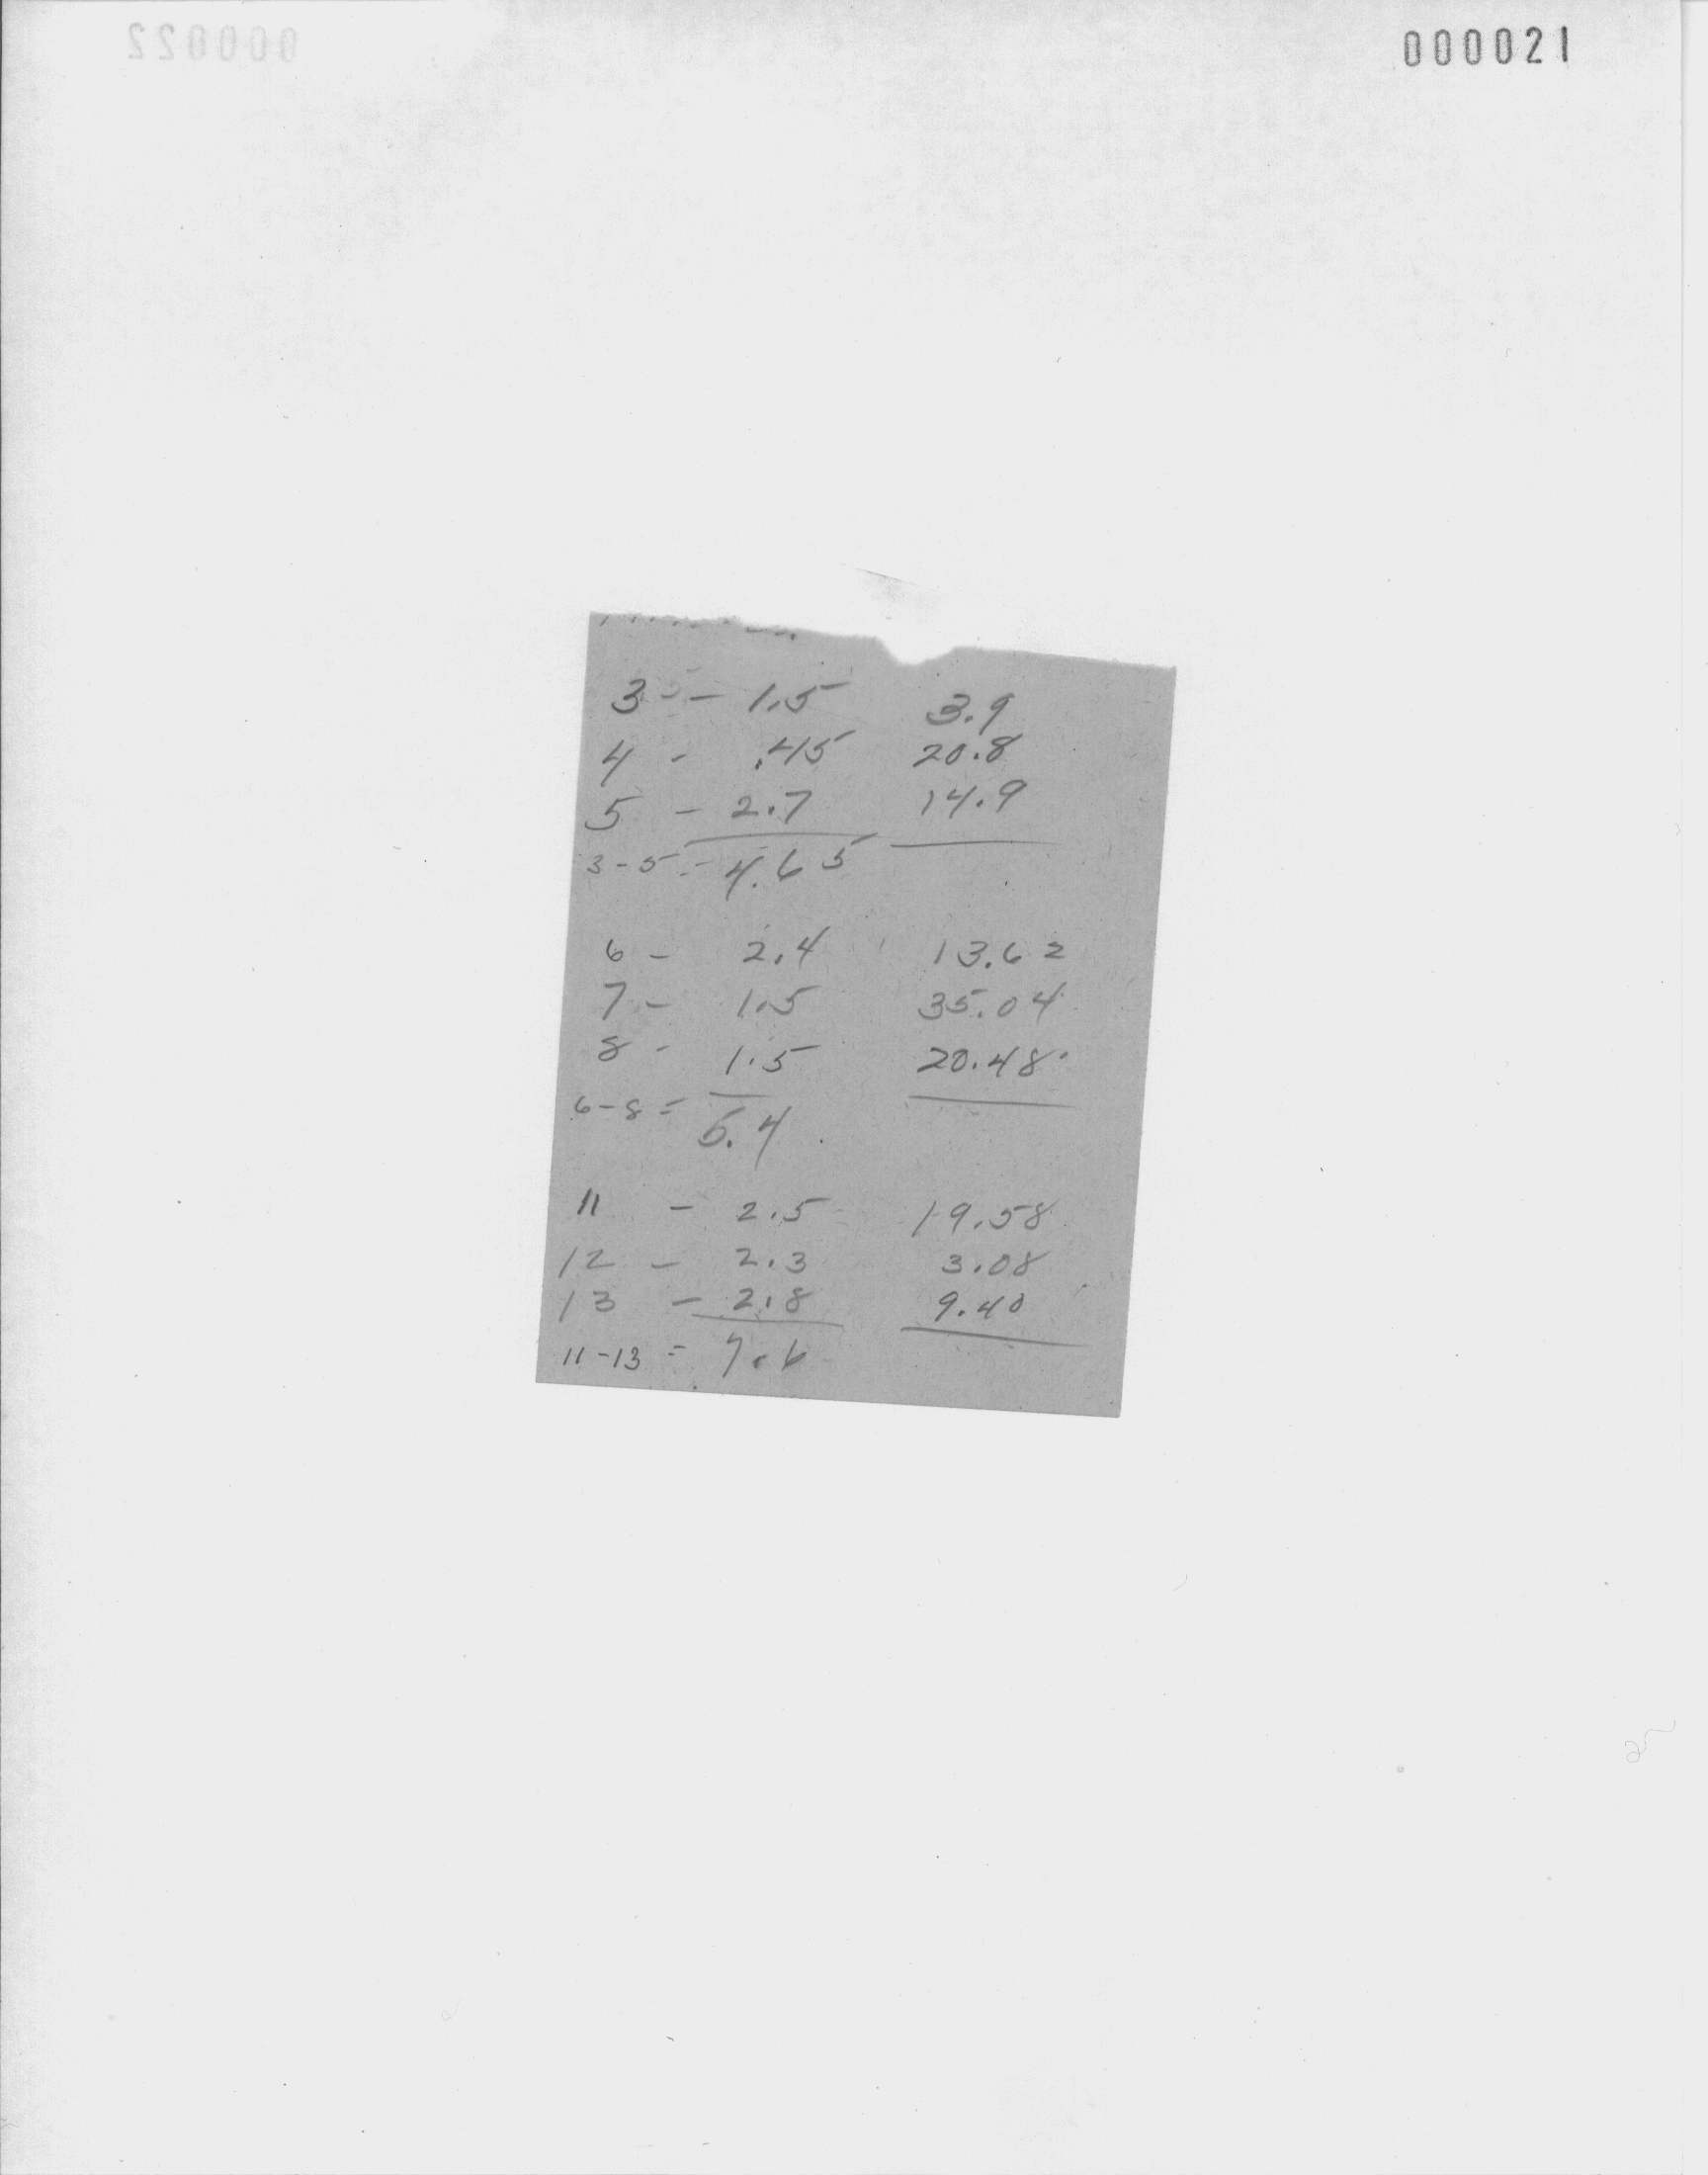 000021
3 - 1.5 3.9
4 - .45 20.8
5 - 2.7 14.9
3-5 = 4.65
6 - 2.4 13.62
7 - 1.5 35.04
8 - 1.5 20.48
6-8 = 5.4
11 - 2.5 19.58
12 - 2.3 3.08
13 - 2.8 9.40
11-13 = 7.6